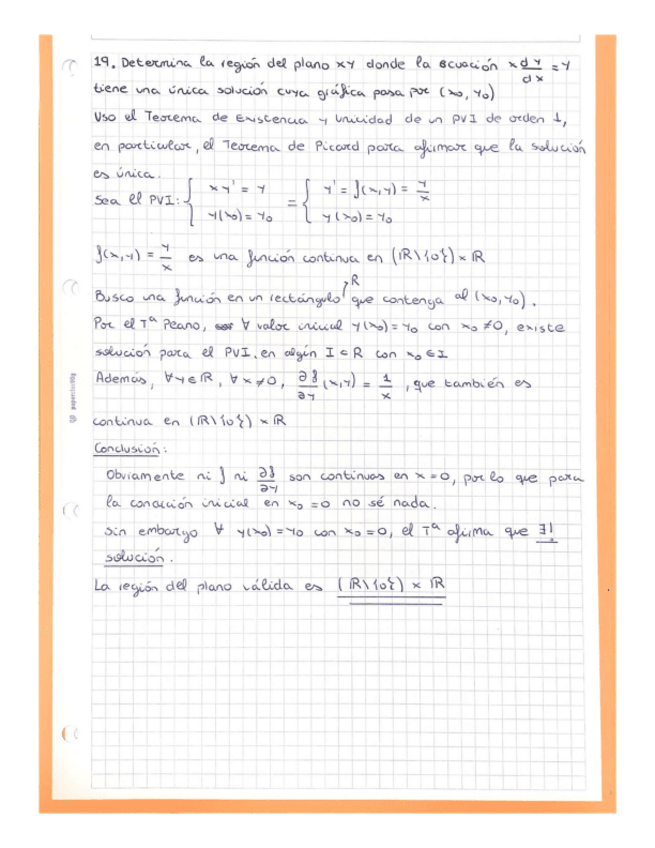 19. Determina la región del plano xy donde la ecuación x dy/dx = y
tiene una única solución cuya gráfica pasa por (x₀, y₀)
Uso el Teorema de Existencia y Unicidad de un PVI de orden 1,
en particular, el Teorema de Picard para afirmar que la solución
es única.
Sea el PVI: { xy' = y = { y' = f(x,y) = y/x
y(x₀) = y₀ y(x₀) = y₀
f(x,y) = y/x es una función continua en (ℝ\{0}) × ℝ
R
Busco una función en un rectángulo que contenga al (x₀, y₀).
Por el Tª Peano, ∀ valor inicial y(x₀) = y₀ con x₀ ≠ 0, existe
solución para el PVI. en algún I ⊂ ℝ con x₀ ∈ I
Además, ∀y∈ℝ, ∀x≠0, ∂f/∂y (x,y) = 1/x, que también es
continua en (ℝ\{0}) × ℝ
Conclusión:
Obviamente ni f ni ∂f/∂y son continuas en x = 0, por lo que para
la condición inicial en x₀ = 0 no sé nada.
Sin embargo ∀ y(x₀) = y₀ con x₀ = 0, el Tª afirma que ∃!
solución.
La región del plano válida es (ℝ\{0}) × ℝ